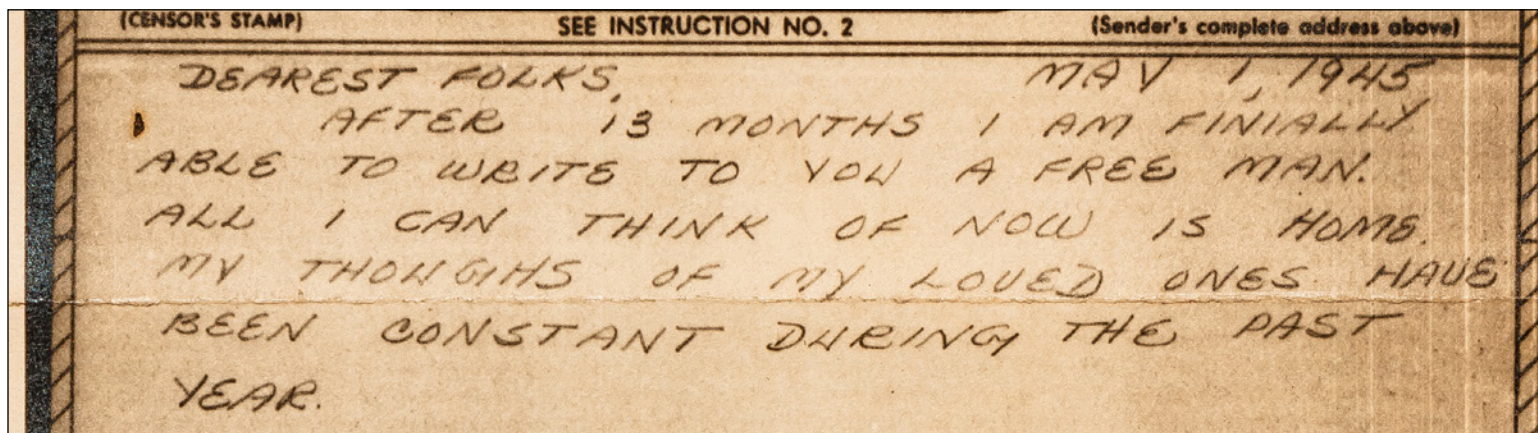 (CENSOR'S STAMP) SEE INSTRUCTION NO. 2 (Sender's complete address above)
DEAREST FOLKS, MAY 1, 1945
AFTER 13 MONTHS I AM FINIALLY
ABLE TO WRITE TO YOU A FREE MAN.
ALL I CAN THINK OF NOW IS HOME.
MY THOUGIHS OF MY LOVED ONES HAVE
BEEN CONSTANT DURING THE PAST
YEAR.